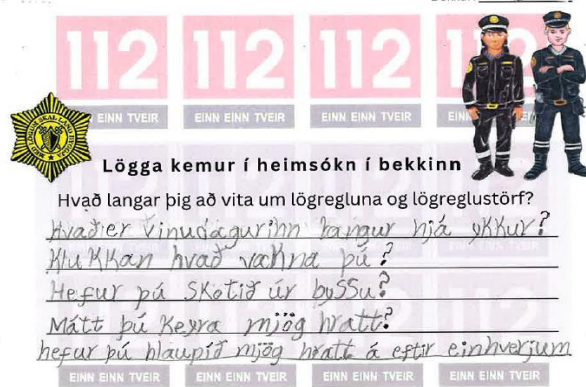 112 112 112 112
EINN TVEIR EINN TVEIR EINN TVEIR EINN
Lögga kemur í heimsókn í bekkinn
Hvað langar þig að vita um lögregluna og lögreglustörf?
Hvað er vinudagurinn langur hjá ykkur?
Klukkan hvað vachna þú?
Hefur þú skotið úr byssu?
Mátt þú keyra mjög hratt?
hefur þú hlaupið mjög hratt á eftir einhverjum
EINN EINN TVEIR EINN EINN TVEIR EINN EINN TVEIR EINN EINN TVEIR